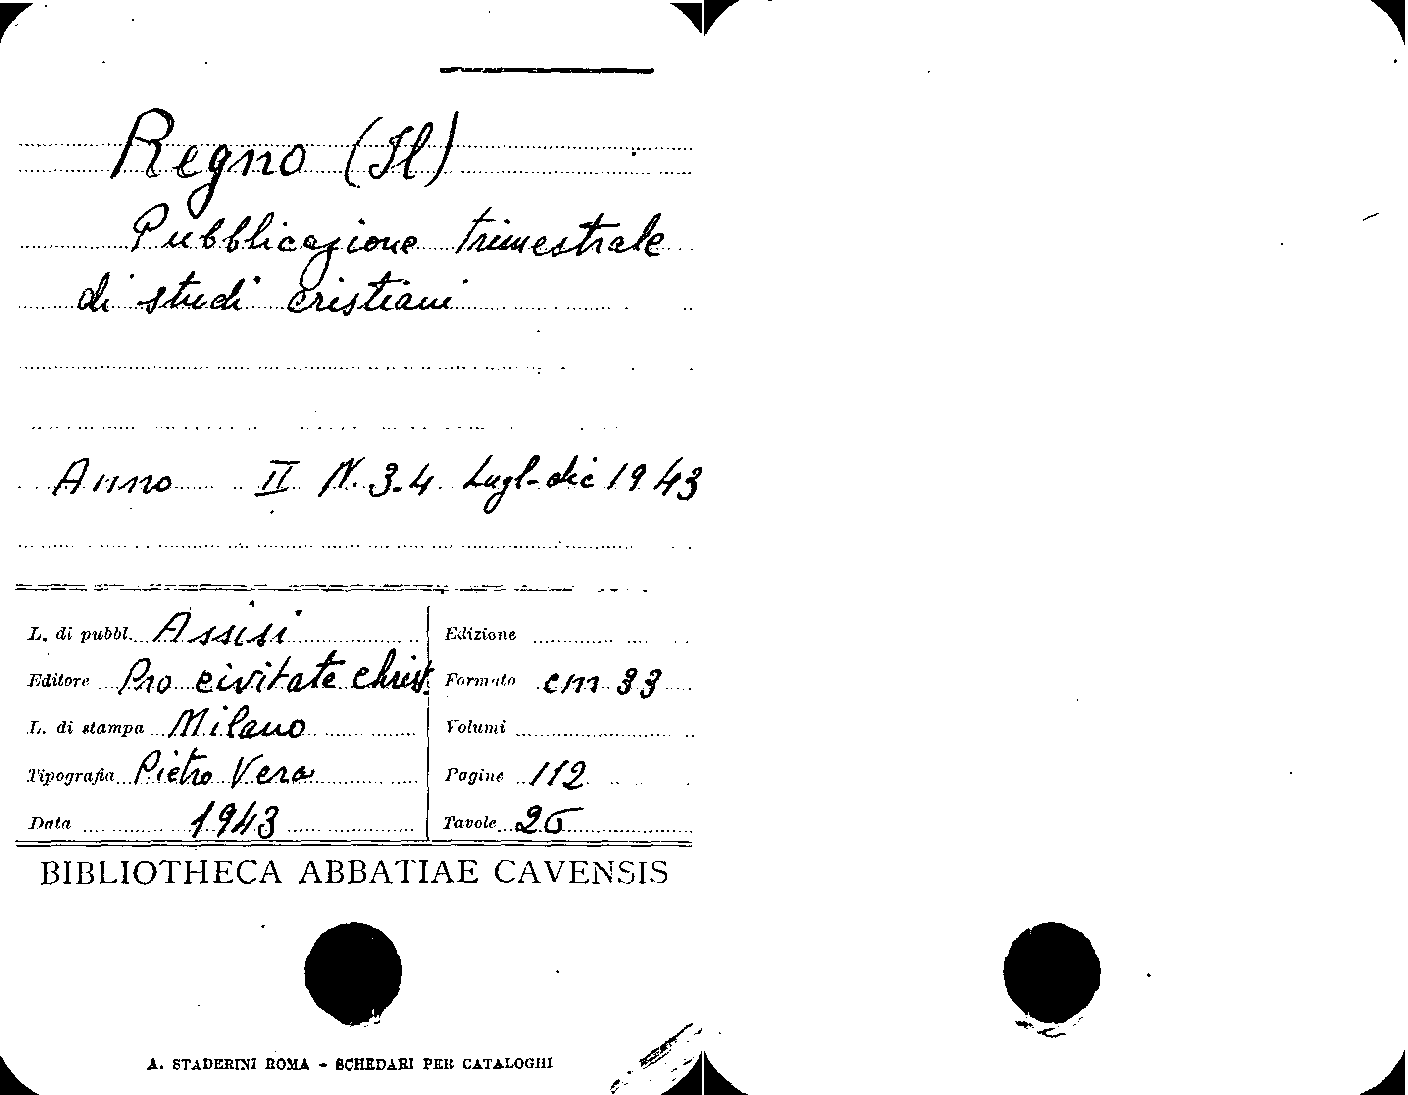 Regno (Il)
Pubblicazione trimestrale
di studi cristiani
Anno II N. 3-4 Lugl-dic 1943
L. di pubbl. Assisi
Edizione
Editore Pro civitate Christ.
Formato cm 33
L. di stampa Milano
Volumi
Tipografia Pietro Vera
Pagine 112
Data 1943
Tavole
BIBLIOTHECA ABBATIAE CAVENSIS
A. STADERINI ROMA - SCHEDARI PER CATALOGHI